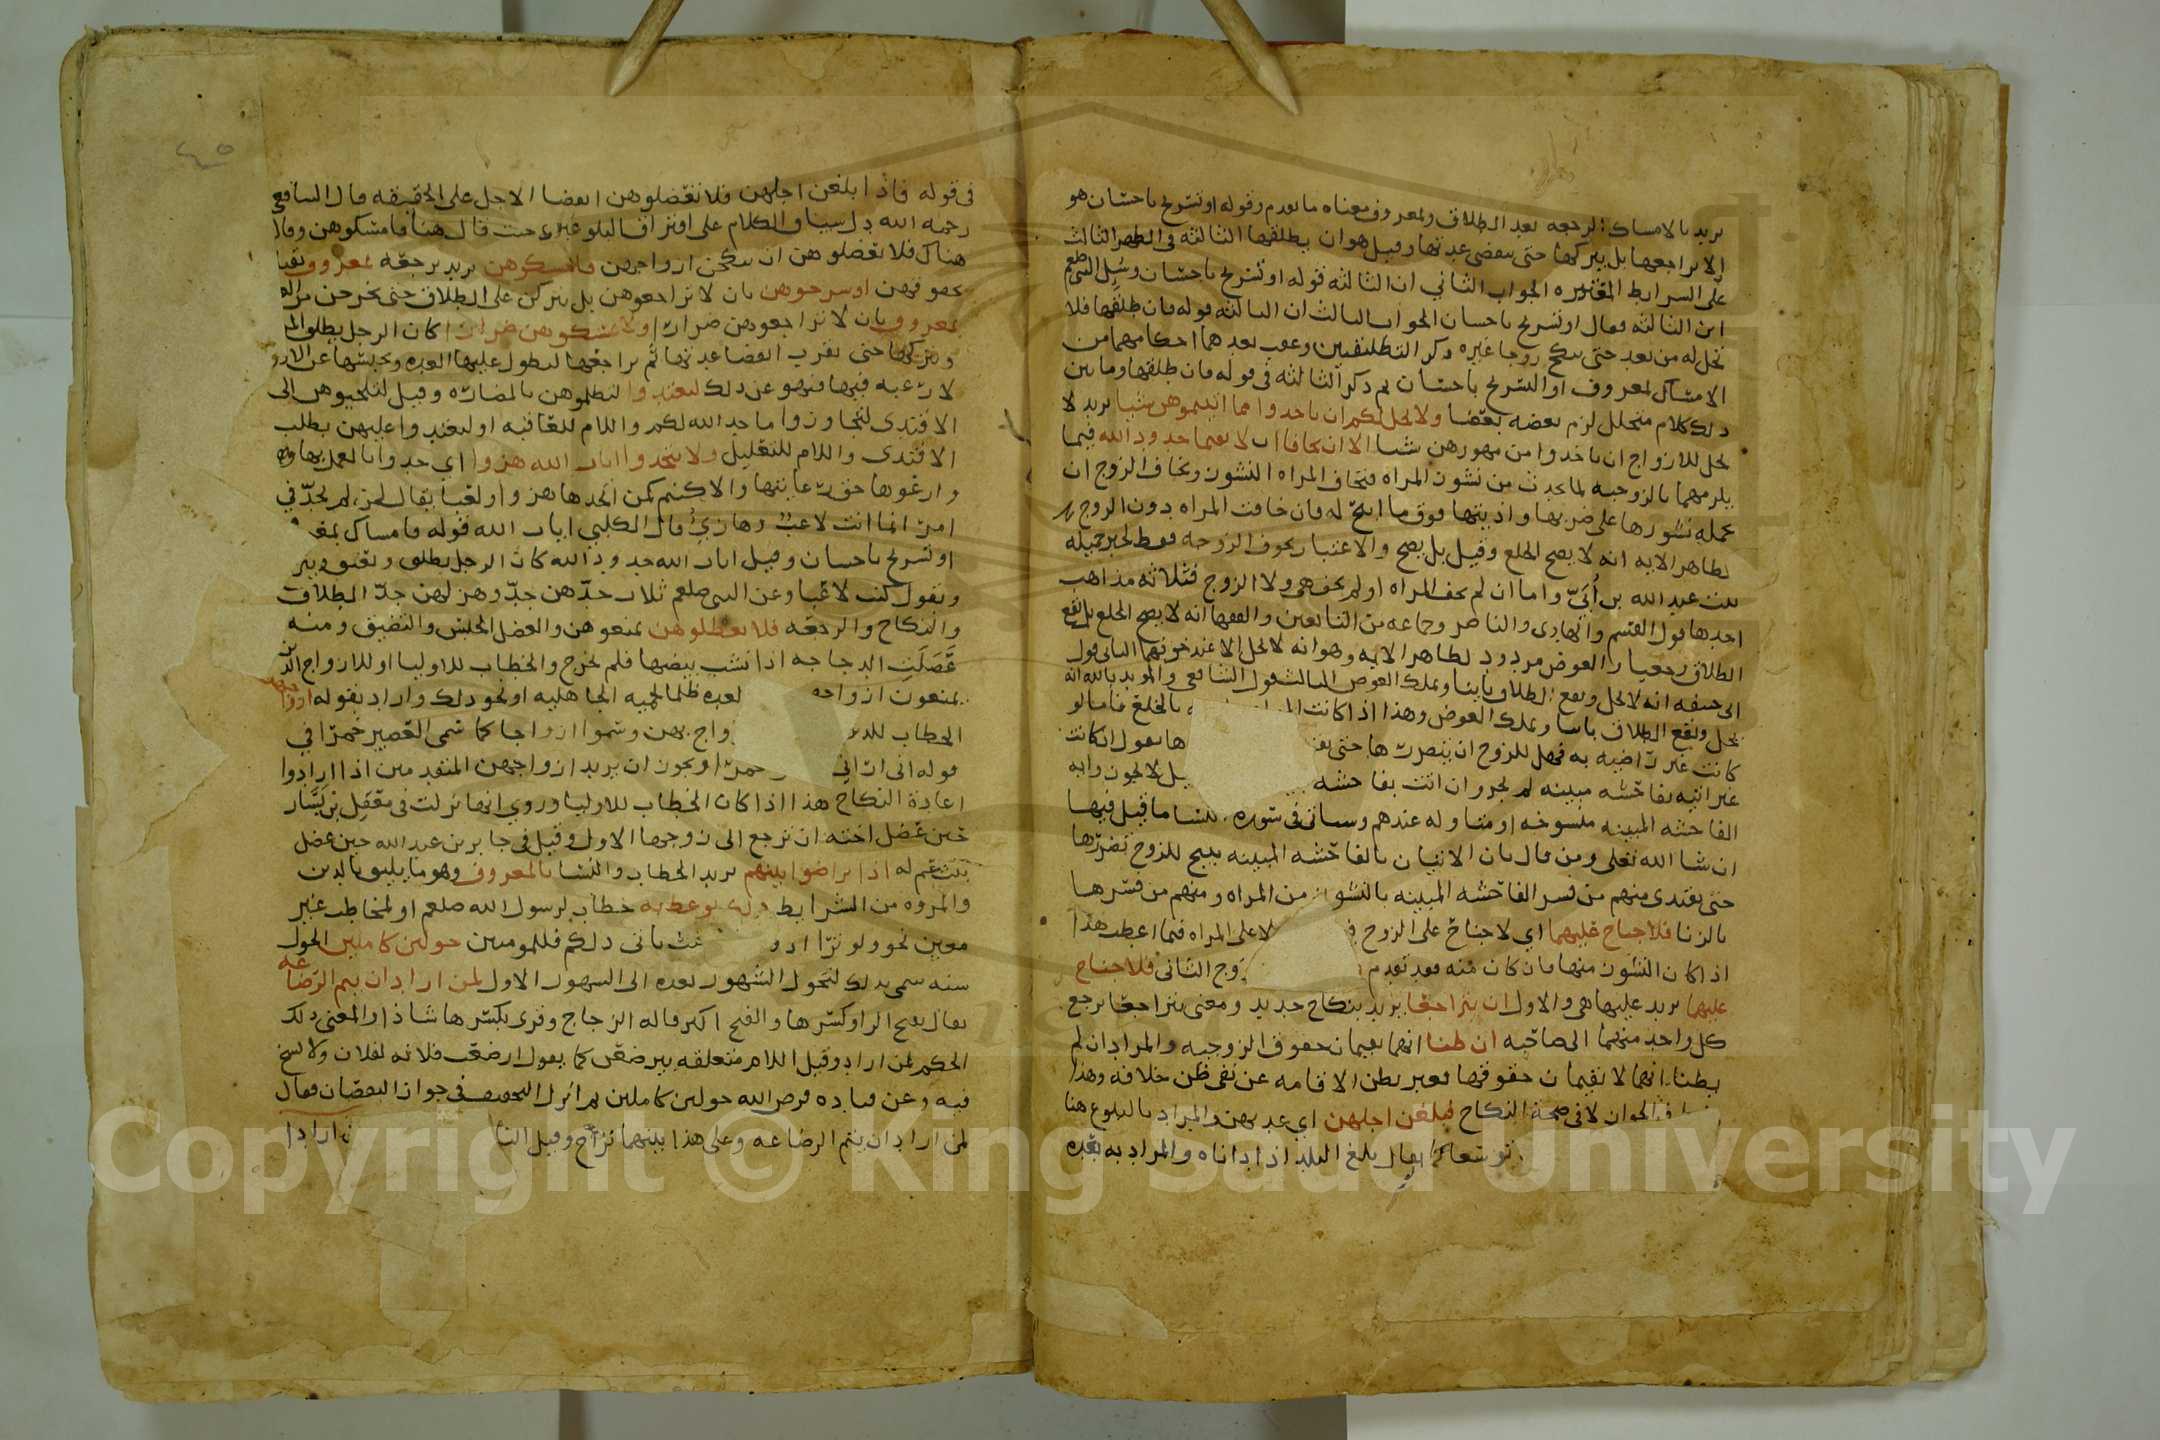 يريد بالامساك الرجعه بعد الطلاق ولمعروف معناه ما تقدم وقوله او تسريح باحسان هو
الا يراجعها بل يتركها حتى تنقضي عدتها وقيل هو ان يطلقها الثالثه في الطهر الثالث
على الشرايط المعتبره الجواب الثاني ان الثالثه قوله او تسريح باحسان وسيل النبي صلعم
اين الثالثه فقال او تسريح باحسان الجواب الثالث ان الثالثه قوله فان طلقها فلا
تحل له من بعد حتى تنكح زوجا غيره ذكر التطليقتين وعقب بعدهما احكامهما من
الامساك لمعروف او التسريح باحسان ثم ذكر الثالثه في قوله فان طلقها وما بين
ذلك كلام متخلل لزم بعضه بعضا ولا يحل لكم ان تاخذوا مما اتيتموهن شيا يريد لا
يحل للازواج ان ياخذوا من مهورهن شيا الا ان يخافا ان لا يقيما حدود الله فيما
يلزمهما بالزوجيه لما يحدث من نشوز المراه فتخاف المراه النشوز ويخاف الزوج ان
يحمله نشوزها على ضربها واذيتها فوق ما ابيح له فان خافت المراه دون الزوج
لظاهر الايه انه لا يصح الخلع وقيل بل يصح والاعتبار بخوف الزوجه فقط لخبر جميله
بنت عبد الله بن أُبَيّ واما ان لم تخف المراه او لم يخف هي ولا الزوج فثلاثه مذاهب
احدها قول القسم والهادي والناصر وجماعه من التابعين والفقها انه لا يصح الخلع بل يقع
الطلاق رجعيا والعوض مردود لظاهر الايه وهو انه لا يحل الا عند خوفهما الثاني قول
ابي حنيفه انه لا يحل ويقع الطلاق باينا ويملك العوض الثالث قول الشافعي والمويد بالله انه
يحل ويقع الطلاق باينا ويملك العوض وهذا اذا كانت بالخلع فاما لو
كانت غير راضيه به فهل للزوج ان يضرها حتى ها بقول ان كانت
غير اتيه بفاحشه مبينه لم يجز وان اتت بفاحشه يل لا يجوز وايه
الفاحشه المبينه منسوخه او متاوله عندهم وسياتي في سوره النسا ما قيل فيها
ان شا الله تعلى ومن قال بان الاتيان بالفاحشه المبينه يبيح للزوج تضررها
حتى تفتدى منهم من فسر الفاحشه المبينه بالنشوز من المراه ومنهم من فسرها
بالزنا فلا جناح عليهما اي لا جناح على الزوج لا على المراه فيما اعطت هذا
اذا كان النشوز منها فان كان منه فقد تقدم زوج الثاني فلا جناح
عليهما يريد عليها هي والاول ان يتراجعا يريد بنكاح جديد ومعنى يتراجعا يرجع
كل واحد منهما الى صاحبه ان ظنا انهما يقيمان حقوق الزوجيه والمراد ان لم
يظنا انهما لا يقيمان حقوقها فعبر بظن الاقامه عن نفي ظن خلافه وهذا
في الجواز لا في صحة النكاح فبلغن اجلهن اي عدتهن والمراد بالبلوغ هنا
توسعا كما يقال بلغ البلد اذا داناه والمراد به بعده
في قوله فاذا بلغن اجلهن فلا تعضلوهن انقضا الاجل على الحقيقه قال الشافعي
رحمه الله دل سياق الكلام على افتراق البلوغين حيث قال هنا فامسكوهن وقال
هناك فلا تعضلوهن ان ينكحن ازواجهن فامسكوهن يريد برجعه بمعروف
بحقوقهن او سرحوهن بان لا تراجعوهن بل يتركن على الطلاق حتى يخرجن من
بمعروف بان لا تراجعوهن ضرارا ولا تمسكوهن ضرارا كان الرجل يطلق
ويتركها حتى تقرب انقضا عدتها ثم يراجعها ليطول عليها العده ويحبسها عن
لا رغبه فيها فنهو عن ذلك لتعتدوا لتظلموهن بالمضاره وقيل لتلجيوهن الى
الافتدى لتجاوزوا ما حد الله لكم واللام للعاقبه او لتعتدوا عليهن بطلب
الافتدى واللام للتعليل ولا تتخذوا ايات الله هزوا اي جدوا بالعمل بها
وارعوها حق رعايتها والا كنتم كمن اتخذها هزوا ولعبا يقال لمن لم يجدّ في
امر انما انت لاعب وهازئ قال الكلبي ايات الله قوله فامساك بمعر
او تسريح باحسان وقيل ايات الله حدود الله كان الرجل يطلق ويعتق
ويقول كنت لاعبا وعن النبي صلعم ثلاث جدّهن جدّ وهزلهن جدّ الطلاق
والنكاح والرجعه فلا تعضلوهن تمنعوهن والعضل الحبس والتضيق ومنه
عَضَلَتِ الدجاجه اذا نشب بيضها فلم يخرج والخطاب للاوليا او للازواج الذين
يمنعون ازواجه لعده ظلما لحميه الجاهليه او نحو ذلك واراد بقوله ازواجهن
الخطاب للذ واج بهن وسموا ازواجا كما سمى العصير خمرا في
قوله اني اراني خمرا ويجوز ان يريد ازواجهن المتقدمين اذا ارادوا
اعادة النكاح هذا اذا كان الخطاب للاوليا وروي انها نزلت في مَعْقِل بْن يَسَار
حين عضل اخته ان ترجع الى زوجها الاول وقيل في جابر بن عبد الله حين عضل
بنت عم له اذا تراضوا بينهم يريد الخطاب والنسا بالمعروف وهو ما يليق بالدين
والمروه من الشرايط ذلك يوعظ به خطاب لرسول الله صلعم او لمخاطب غير
معين نحو ولو ترا اذ و ياتي ذلكم فللمومنين حولين كاملين الحول
سنه سمى بذلك لتحول الشهور بعده الى الشهور الاول لمن اراد ان يتم الرضاعه
يقال بفتح الرا وكسرها والفتح اكثر قاله الزجاج وقرى بكسرها شاذا والمعنى ذلك
الحكم لمن اراد وقيل اللام متعلقه بيرضعن كما يقول ارضعت فلانه لفلان ولا نسخ
فيه وعن قتاده فرض الله حولين كاملين ثم انزل التخفيف في جواز النقصان فقال
لمن اراد ان يتم الرضاعه وعلى هذا بينهما تراخ وقيل ارادا
Copyright © King Saud University